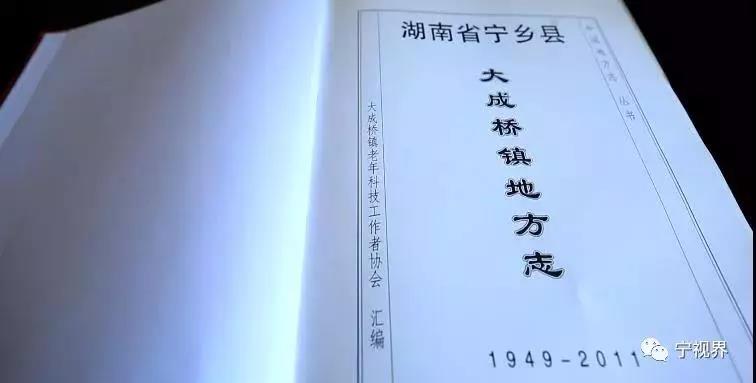 湖南省宁乡县
中国地方志丛书
大成桥镇地方志
大成桥镇老年科技工作者协会 汇编
1949-2011
宁视界